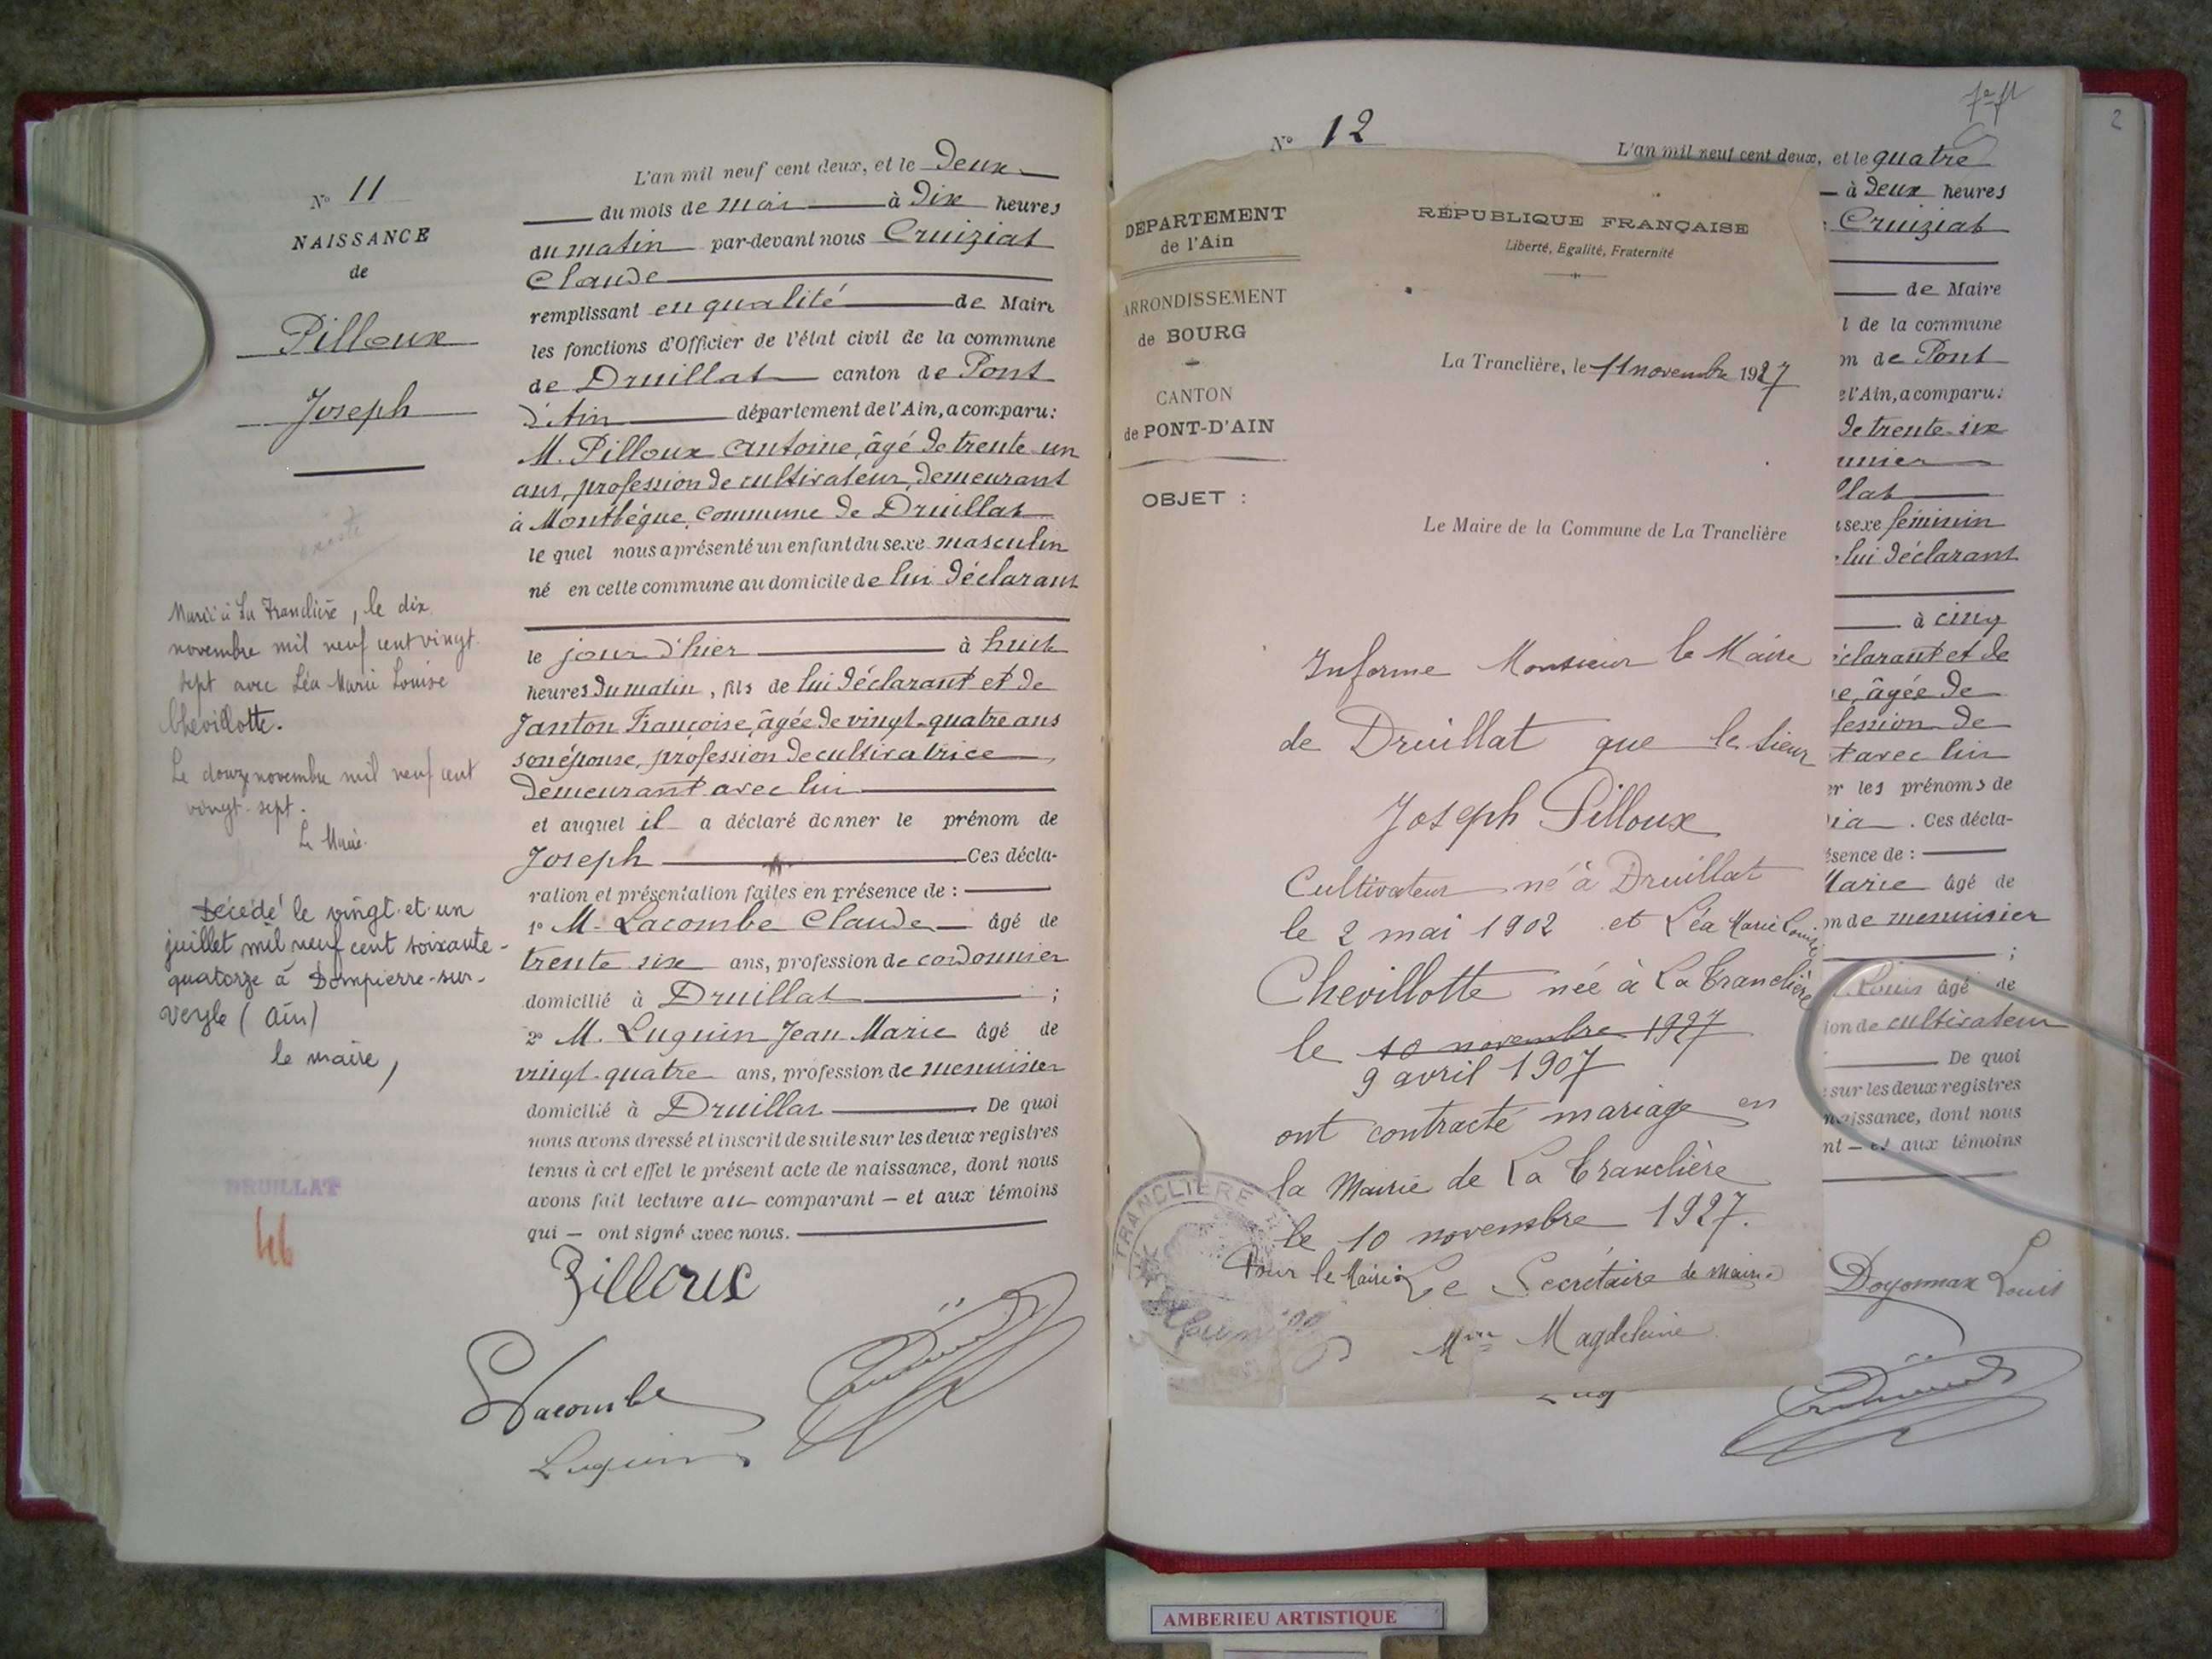 N° 11
NAISSANCE
de
Pilloux
Joseph
Marié à La Tranclière, le dix
novembre mil neuf cent vingt-
sept avec Léa Marie Louise
Chevillotte.
Le douze novembre mil neuf cent
vingt-sept.
Le Maire.
Décédé le vingt-et-un
juillet mil neuf cent soixante-
quatorze à Dompierre-sur-
Veyle (Ain)
le maire,
DRUILLAT
L'an mil neuf cent deux, et le deux
du mois de mai à dix heures
du matin par-devant nous Cruiziat
Claude
remplissant en qualité de Maire
les fonctions d'Officier de l'état civil de la commune
de Druillat canton de Pont
d'Ain département de l'Ain, a comparu:
M. Pilloux Antoine, âgé de trente un
ans, profession de cultivateur, demeurant
à Montbègue, commune de Druillat
le quel nous a présenté un enfant du sexe masculin
né en cette commune au domicile de lui déclarant
le jour d'hier à huit
heures du matin, fils de lui déclarant et de
Janton Françoise, âgée de vingt-quatre ans
son épouse, profession de cultivatrice,
demeurant avec lui
et auquel il a déclaré donner le prénom de
Joseph Ces décla-
ration et présentation faites en présence de :
1° M. Lacombe Claude âgé de
trente six ans, profession de cordonnier
domicilié à Druillat ;
2° M. Luguin Jean Marie âgé de
vingt-quatre ans, profession de menuisier
domicilié à Druillat. De quoi
nous avons dressé et inscrit de suite sur les deux registres
tenus à cet effet le présent acte de naissance, dont nous
avons fait lecture au comparant – et aux témoins
qui – ont signé avec nous.
Pilloux
Lacombe
Luguin
N° 12
DÉPARTEMENT
de l'Ain
ARRONDISSEMENT
de BOURG
CANTON
de PONT-D'AIN
OBJET :
RÉPUBLIQUE FRANÇAISE
Liberté, Egalité, Fraternité
La Tranclière, le 11 novembre 1927
Le Maire de la Commune de La Tranclière
Informe Monsieur le Maire
de Druillat que le sieur
Joseph Pilloux
Cultivateur né à Druillat
le 2 mai 1902 et Léa Marie Louise
Chevillotte née à La Tranclière
le 10 novembre 1927
9 avril 1907
ont contracté mariage en
la Mairie de La Tranclière
le 10 novembre 1927.
Pour le Maire: Le Secrétaire de Mairie
Mme Magdeleine
TRANCLIERE
L'an mil neuf cent deux, et le quatre
à deux heures
Cruiziat
de Maire
l de la commune
n de Pont
e l'Ain, a comparu:
de trente-six
unier
llat
sexe féminin
lui déclarant
à cinq
éclarant et de
e, âgée de
fession de
t avec lui
er les prénoms de
ia. Ces décla-
ésence de :
Marie âgé de
on de menuisier
;
Louis âgé de
ion de cultivateur
De quoi
sur les deux registres
naissance, dont nous
nt – et aux témoins
Doyonnax Louis
2
AMBERIEU ARTISTIQUE